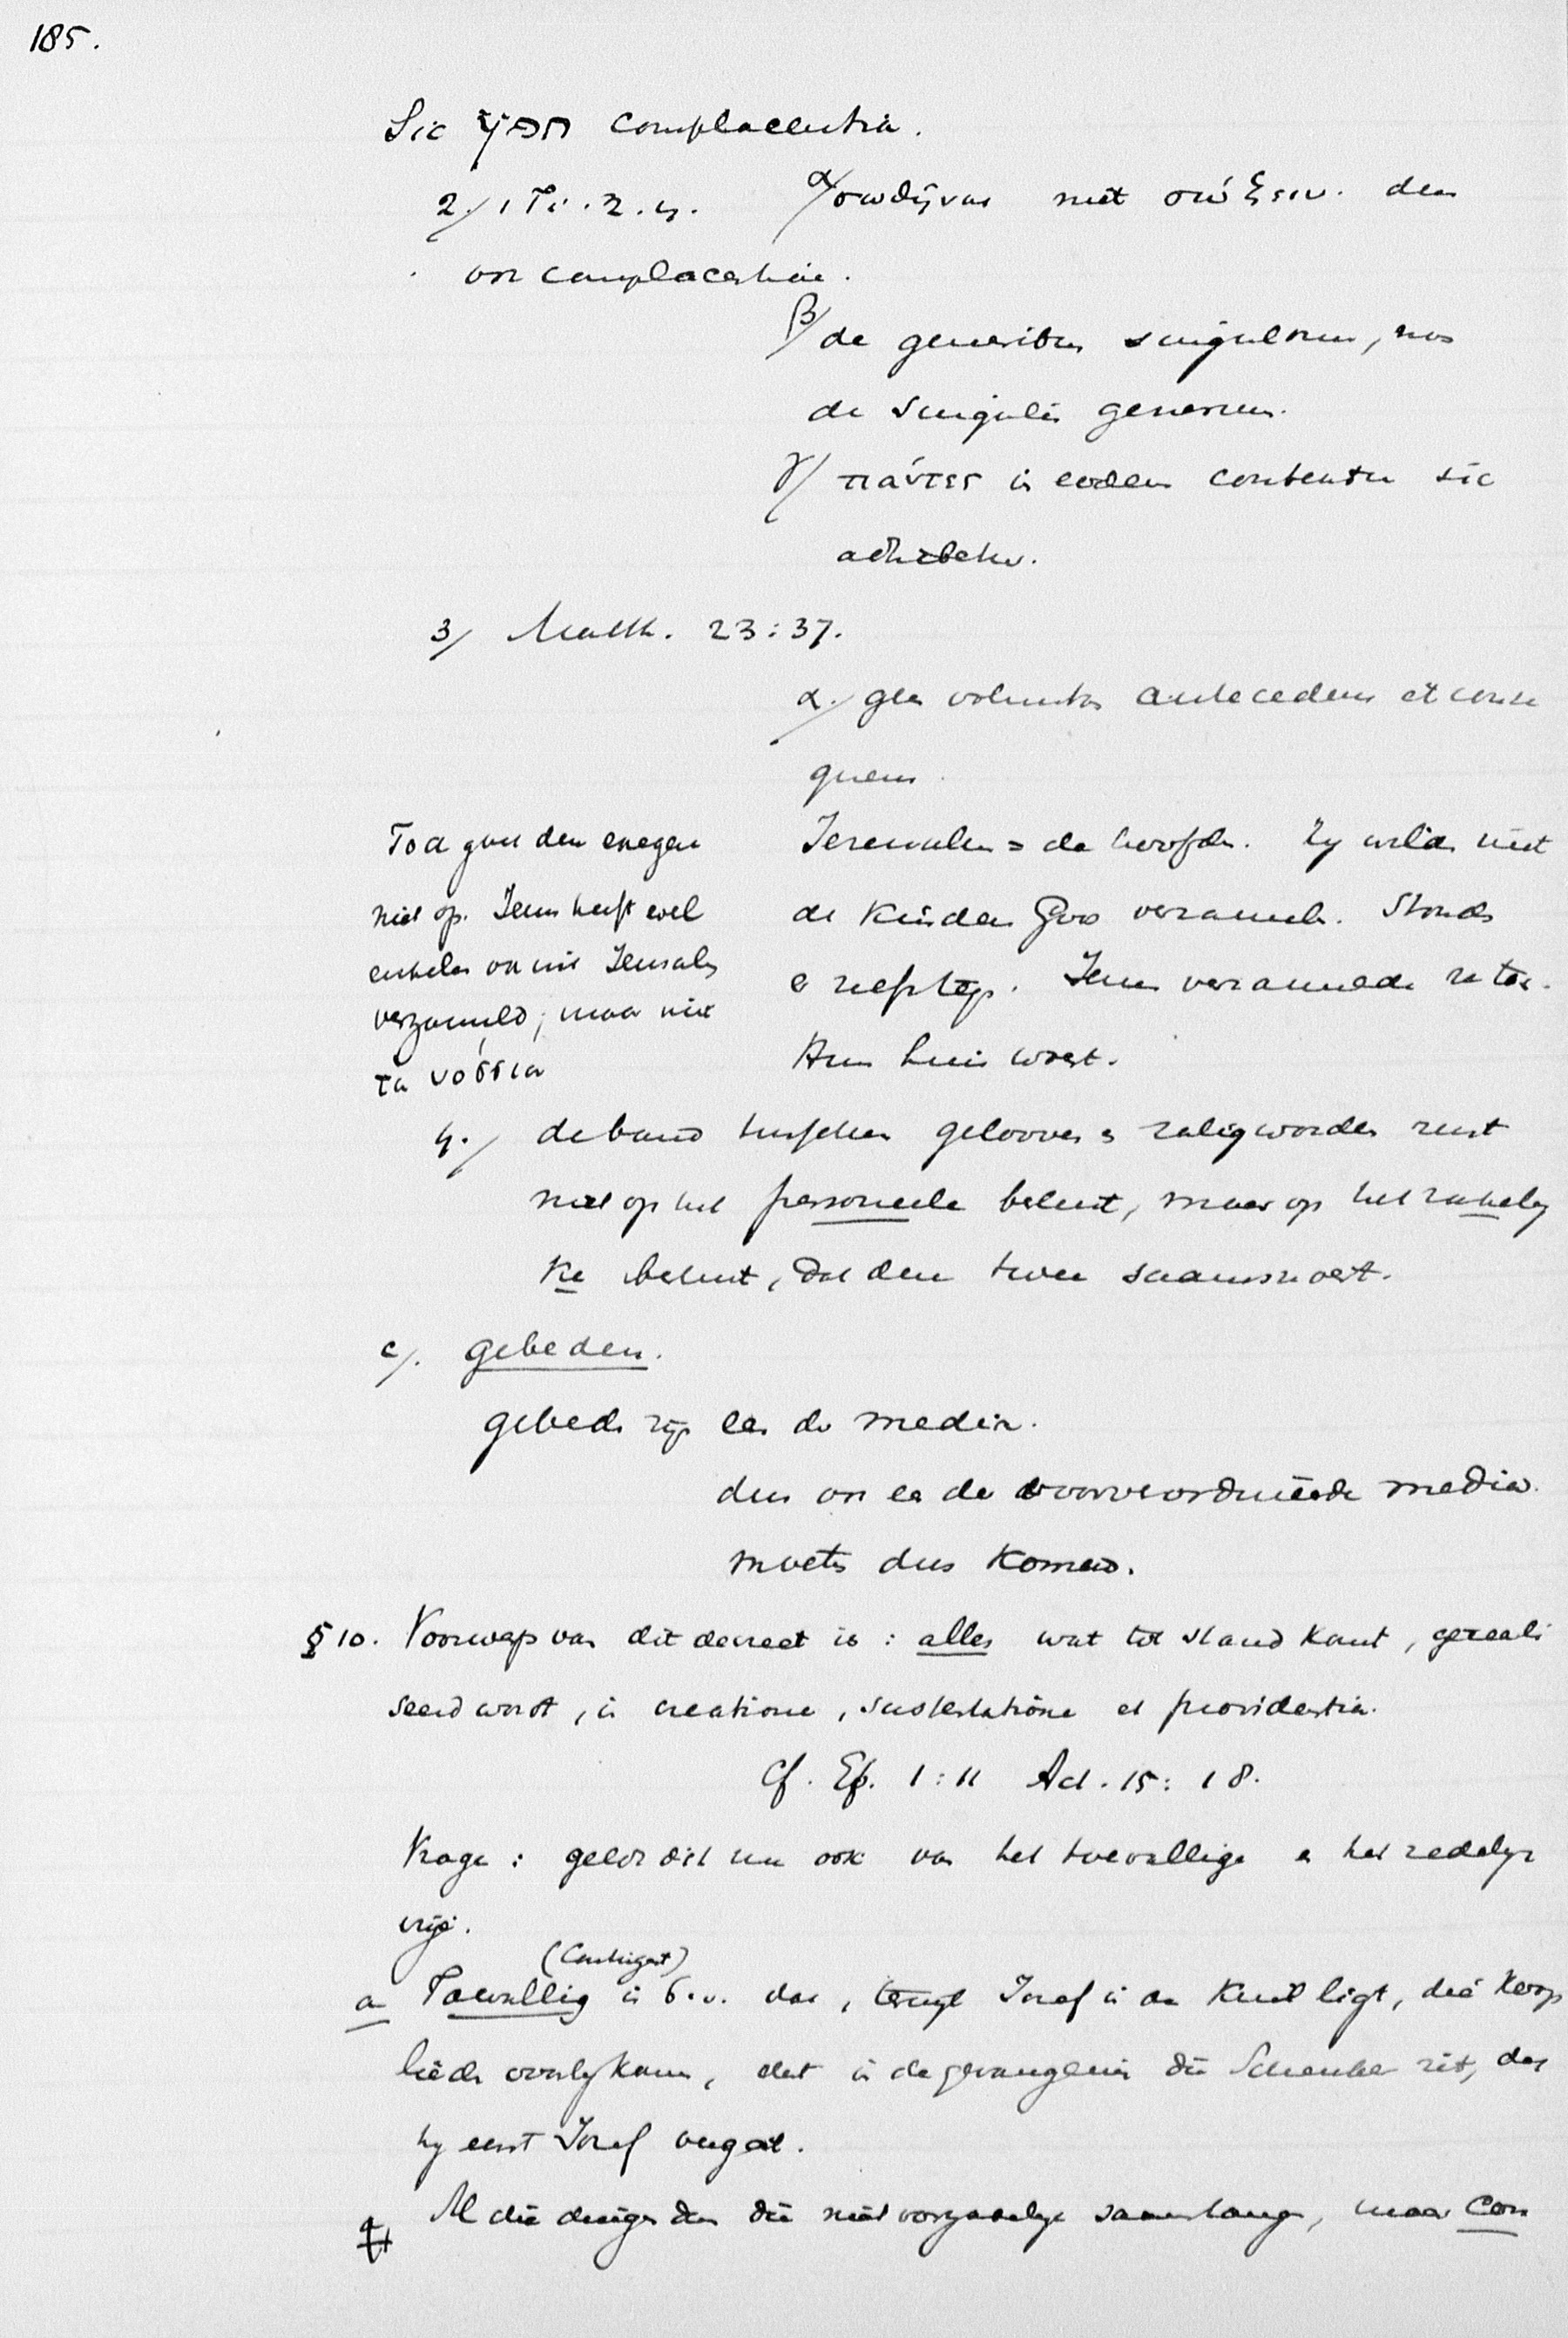 185.
Sic חפץ complacentia.
2./ 1 Ti. 2.4. α/ σωθῆναι niet σώζειν. dus
voz complacentiae.
β/ de generibus singulorum, non
de singulis generum.
γ/ πάντες in eodem contextu sic
adhibetur.
3/ Matth. 23:37.
α./ gn voluntas antecedens et conse
quens.
Jerusalem = de hoofden. Zy wilden niet
de kinderen Gods verzameld. Stonden
er zelfs tegen. Jezus verzamelde ze toch.
Hun huis woest.
Tod gaat den enegen
niet op. Jezus heeft wel
enkelen van uit Jerusalem
verzameld; maar niet
τα νοσσια
4./ de band tusschen gelooven en zaligworden rust
niet op het personeele besluit, maar op het zakelij
ke besluit, dat den twee saamsnoert.
c/. gebeden.
gebeden zijn een der media.
dus om en de voorverordineerde media
moeten dus komen.
§ 10. Voorwerp van dit decreet is: alles wat tot stand komt, gereali
seerd wordt, in creatione, sustentatione et providentia.
Cf. Ef. 1:11 Act. 15:18.
Vrage: geldt dit nu ook van het toevallige en het redelijk
vrije.
(Contingent)
a Toevallig is b.v. dat, terwijl Jozef in de kuil ligt, die koop
lieden voorbij kamen, dat in de gevangenis die Schenker zit, dat
hij eerst Jozef vergat.
Al die dingen dus die niet noodzakelijk samenhangen, maar con